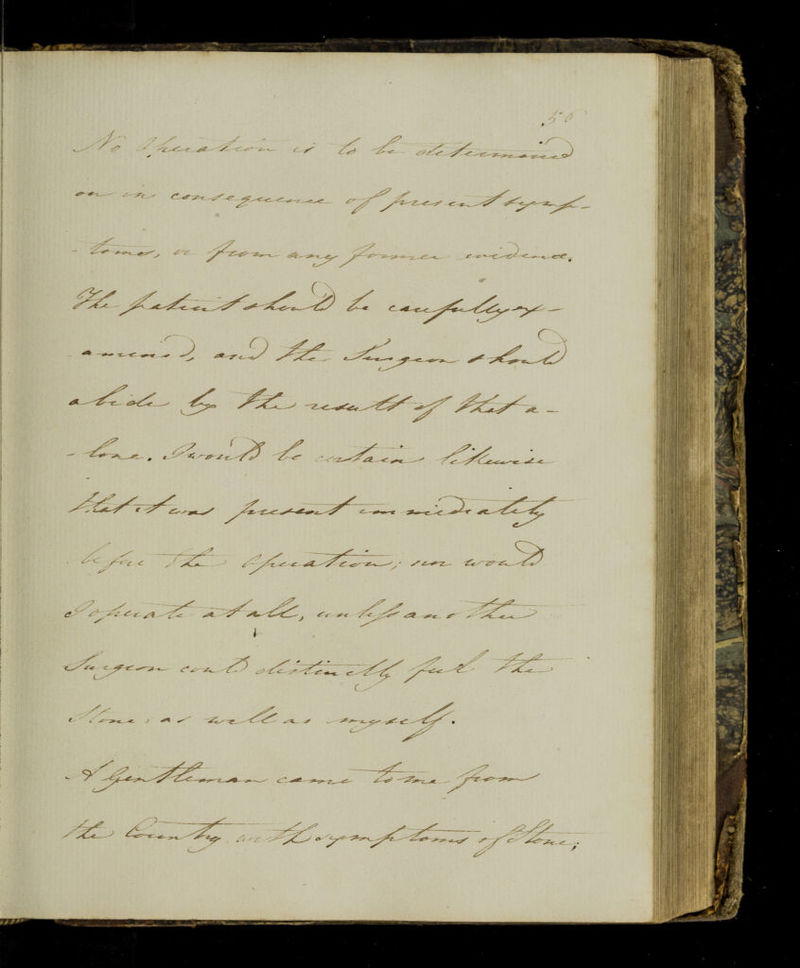 56
No Operation is to be determined
on in consequence of present symp-
- toms, or from any former evidence.
The patient should be carefully ex-
amined, and the Surgeon should
abide by the result of that a-
- lone. I would be certain likewise
that it was present immediately
before the Operation; nor would
I operate at all, unless another
Surgeon could distinctly feel the
Stone, as well as myself.
A Gentleman came to me from
the Country with symptoms of Stone;